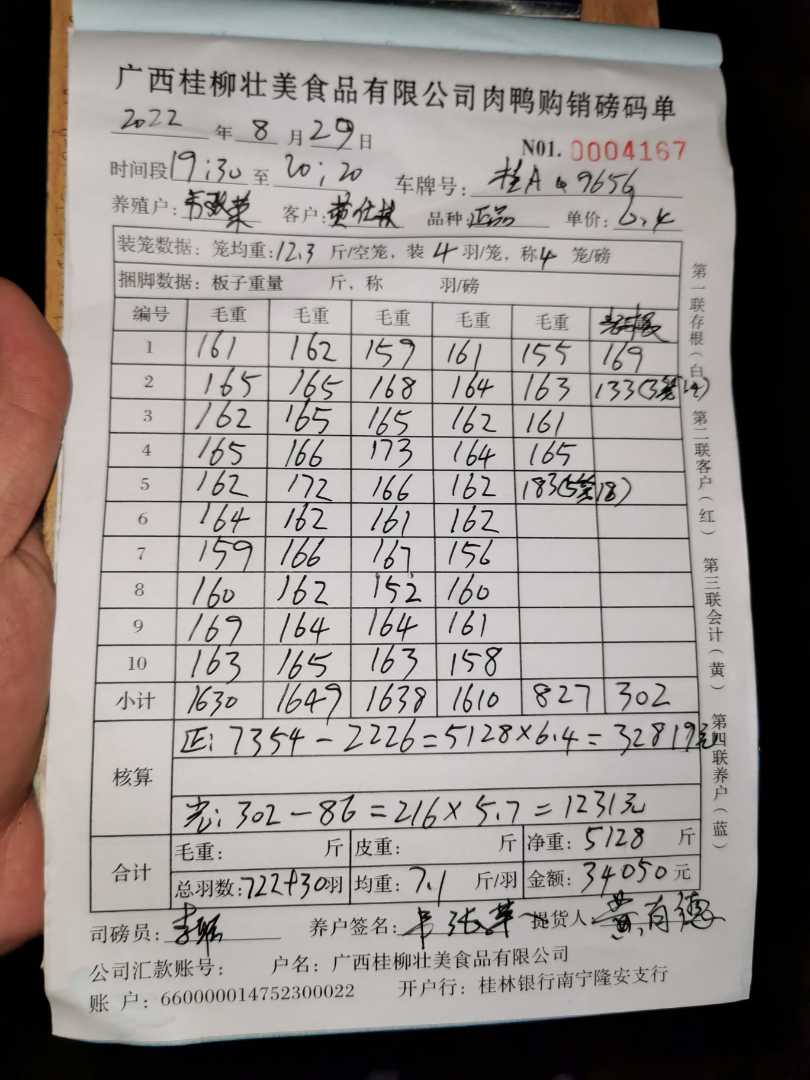 广西桂柳壮美食品有限公司肉鸭购销磅码单
2022 年 8 月 29 日 N01. 0004167
时间段 19:30 至 20:20 车牌号: 桂A Q9656
养殖户: 客户: 黄仕 品种: 正品 单价: 6.4
装笼数据: 笼均重: 12.3 斤/空笼, 装 4 羽/笼, 称 4 笼/磅
捆脚数据: 板子重量 斤, 称 羽/磅
编号 毛重 毛重 毛重 毛重 毛重
1 161 162 159 161 155 169
2 165 165 168 164 163 133(3笼12)
3 162 165 165 162 161
4 165 166 173 164 165
5 162 172 166 162 183(5笼18)
6 164 162 161 162
7 159 166 167 156
8 160 162 152 160
9 169 164 164 161
10 163 165 163 158
小计 1630 1649 1638 1610 827 302
核算
正: 7354-2226=5128×6.4=32819元
光: 302-86=216×5.7=1231元
合计
毛重: 斤 皮重: 斤 净重: 5128 斤
总羽数: 722+30 羽 均重: 7.1 斤/羽 金额: 34050 元
司磅员: 养户签名: 提货人: 黄有德
公司汇款账号: 户名: 广西桂柳壮美食品有限公司
账 户: 660000014752300022 开户行: 桂林银行南宁隆安支行
第一联存根(白) 第二联客户(红) 第三联会计(黄) 第四联养户(蓝)